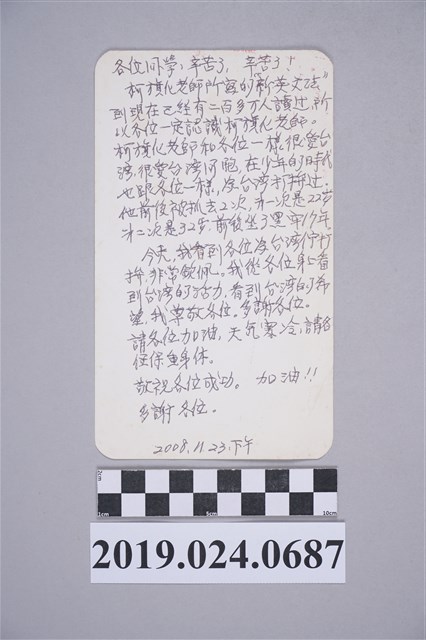 各位同學，辛苦了，辛苦了！
柯旗化老師所寫的"新英文法"
到現在已經有二百多万人讀过，所
以各位一定認識柯旗化老師。
柯旗化老師和各位一樣，很愛台
湾，很愛台湾同胞，在少年的時代
也跟各位一樣，為台湾打拼过。
他前後被抓去2次，才一次是22岁
才二次是32岁，前後坐了黑牢17年。
今天，我看到各位為台湾作打
拼，非常欽佩。我從各位身上看
到台湾的活力，看到台湾的希
望，我尊敬各位。多謝各位。
請各位加油，天气寒冷，請各
位保重身体。
敬祝各位成功。 加油!!
多謝各位。
2008.11.23.下午
2cm
1cm 5cm 10cm
2019.024.0687